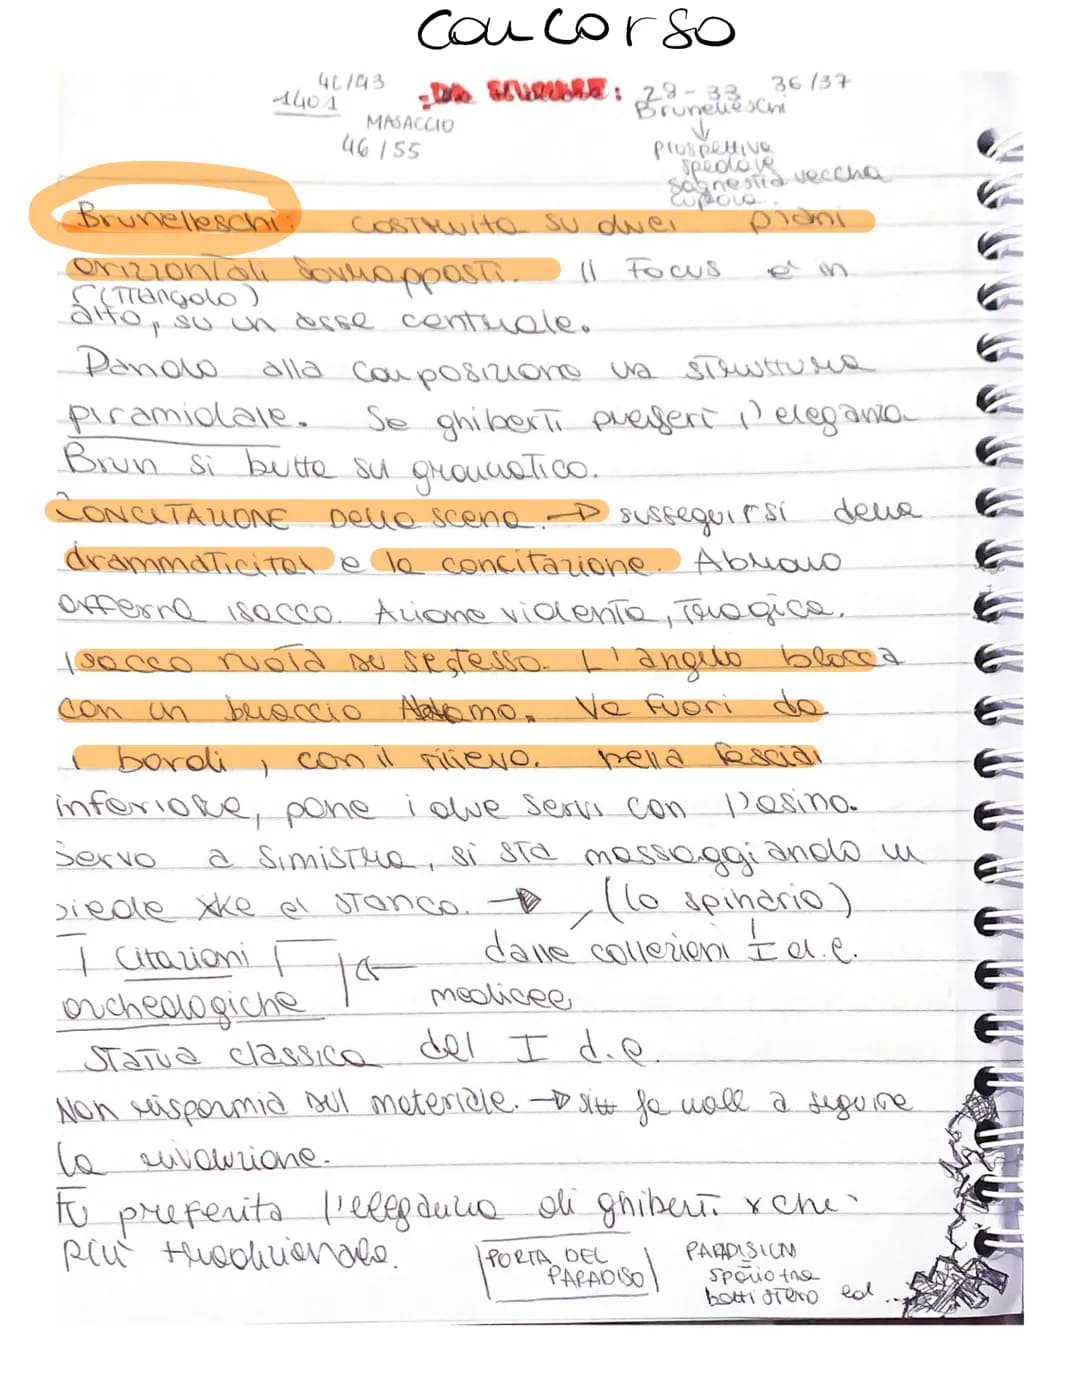 concorso
42/43
1401
MASACCIO
46/55
: DA STUDIARE :
28-33 36/37
Brunelleschi
prospettiva
spedale
sagrestia vecchia
cupola.
Brunelleschi: costruito su due piani
orizzontali sovrapposti. Il Focus è in
(triangolo)
alto, su un asse centrale.
Dando alla composizione una struttura
piramidale. Se ghiberti preferì l'eleganza
Brun si butta sul
CONCITAZIONE Della scena. → susseguirsi della
drammaticità e la concitazione. Abramo
afferra isacco. Azione violenta, Tragica.
Isacco ruota su se stesso. L'angelo blocca
con un braccio Abramo. Va fuori da
i bordi, con il rilievo. nella fascia
inferiore, pone i due servi con l'asino.
Servo a sinistra, si sta massaggiando un
piede xke è stanco. → (lo spinario)
Citazioni dalle collezioni I d.C.
archeologiche medicee
Statua classica del I d.C.
Non risparmia sul materiale. → fa a seguire
la
Fu preferita l'eleganza di ghiberti xche
più tradizionale.
PORTA DEL
PARADISO
PARADISIUM
spazio tra
battistero ed ...